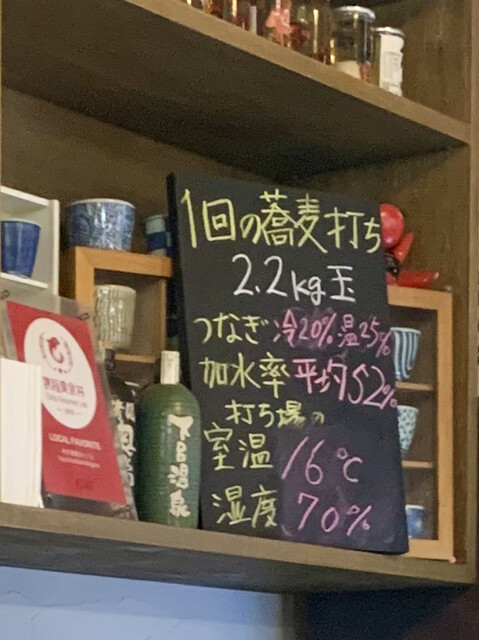 1回の蕎麦打ち
2.2kg玉
つなぎ 冷20% 温25%
加水率 平均52%
打ち場の
室温 16℃
湿度 70%
下呂温泉
LOCAL FAVORITE